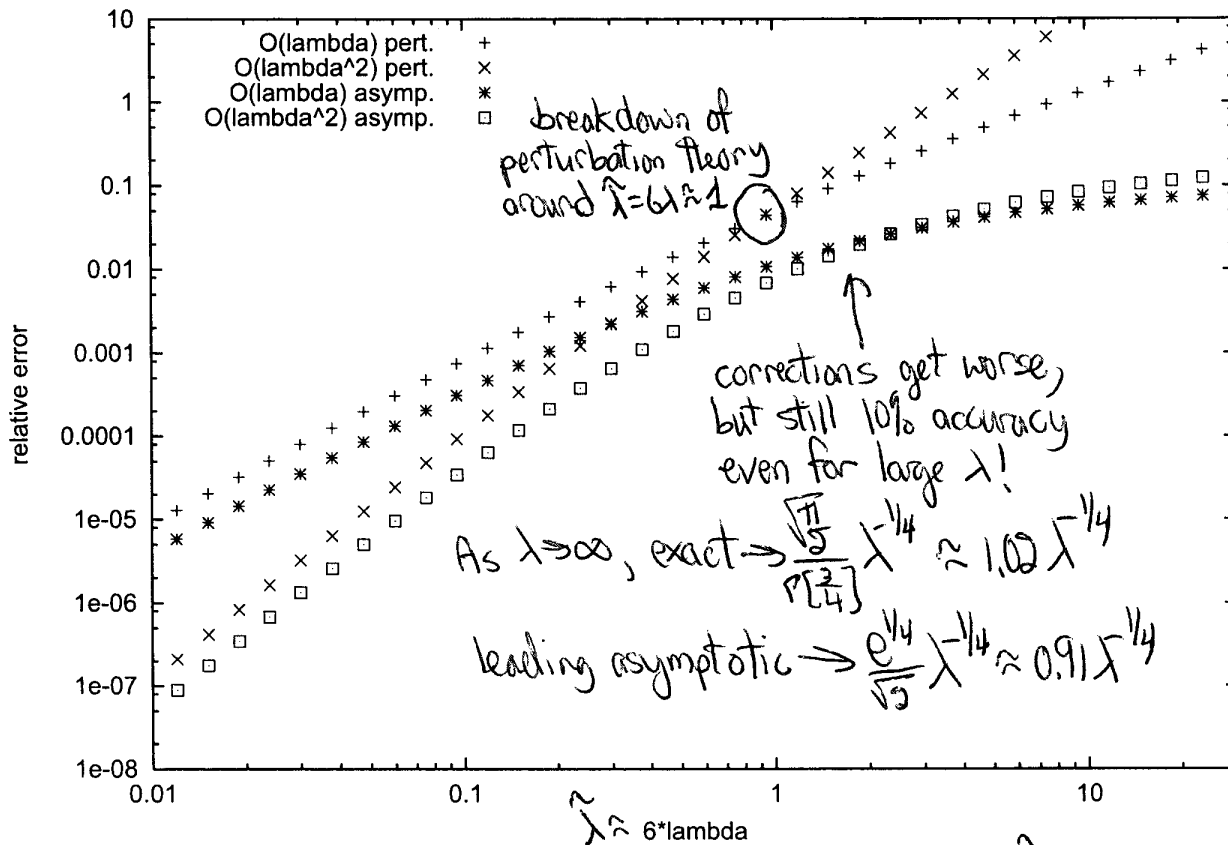 10
1
0.1
0.01
0.001
0.0001
1e-05
1e-06
1e-07
1e-08
relative error
O(lambda) pert. +
O(lambda^2) pert. ×
O(lambda) asymp. ∗
O(lambda^2) asymp. ⊡
breakdown of
perturbation theory
around λ̃=6λ≈1
corrections get worse,
but still 10% accuracy
even for large λ!
As λ→∞, exact → (√π/2)/Γ[3/4] λ^(-1/4) ≈ 1.02 λ^(-1/4)
leading asymptotic → e^(1/4)/√2 λ^(-1/4) ≈ 0.91 λ^(-1/4)
0.01 0.1 1 10
λ̃ ≈ 6*lambda